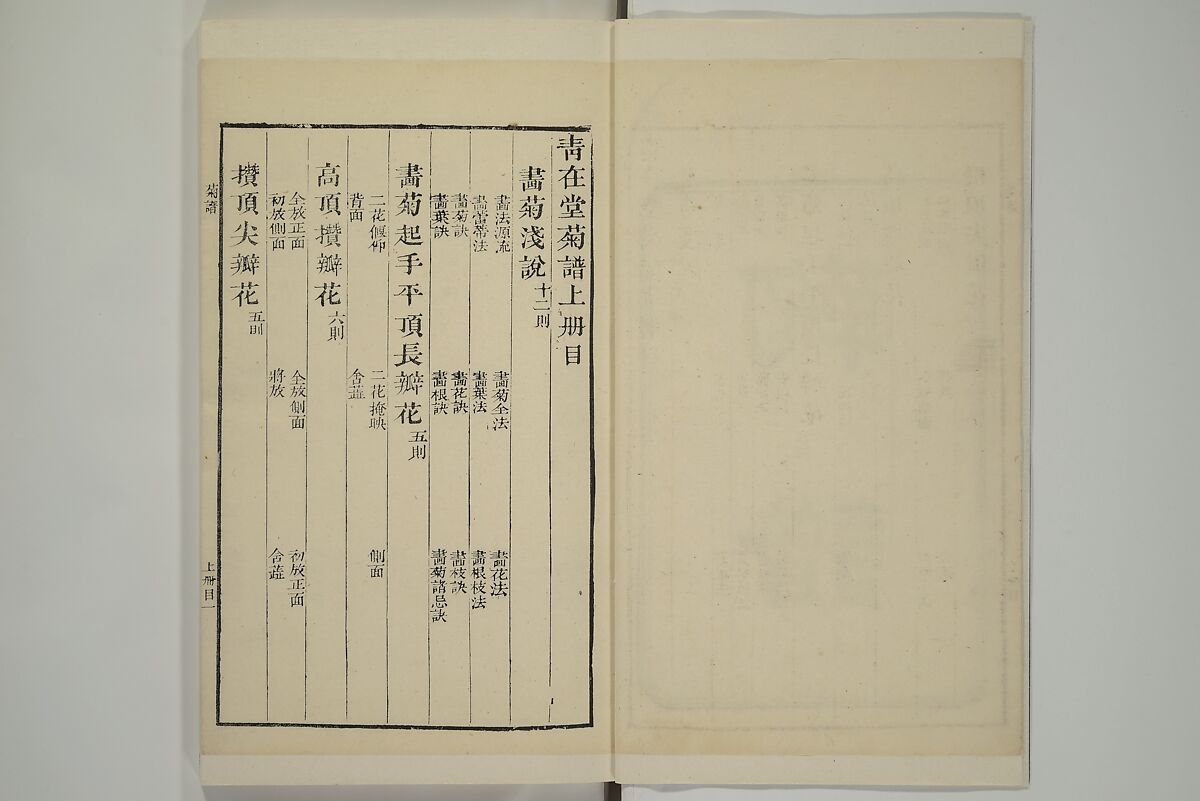 青在堂菊譜上册目
畫菊淺說十二則
畫法源流 畫菊全法 畫花法
畫蕾蒂法 畫葉法 畫根枝法
畫菊訣 畫花訣 畫枝訣
畫葉訣 畫根訣 畫菊諸忌訣
畫菊起手平頂長瓣花五則
二花偃仰 二花掩映 側面
背面 含蕋
高頂攢瓣花六則
全放正面 全放側面 初放正面
初放側面 將放 含蕋
攢頂尖瓣花五則
菊譜 上册目一